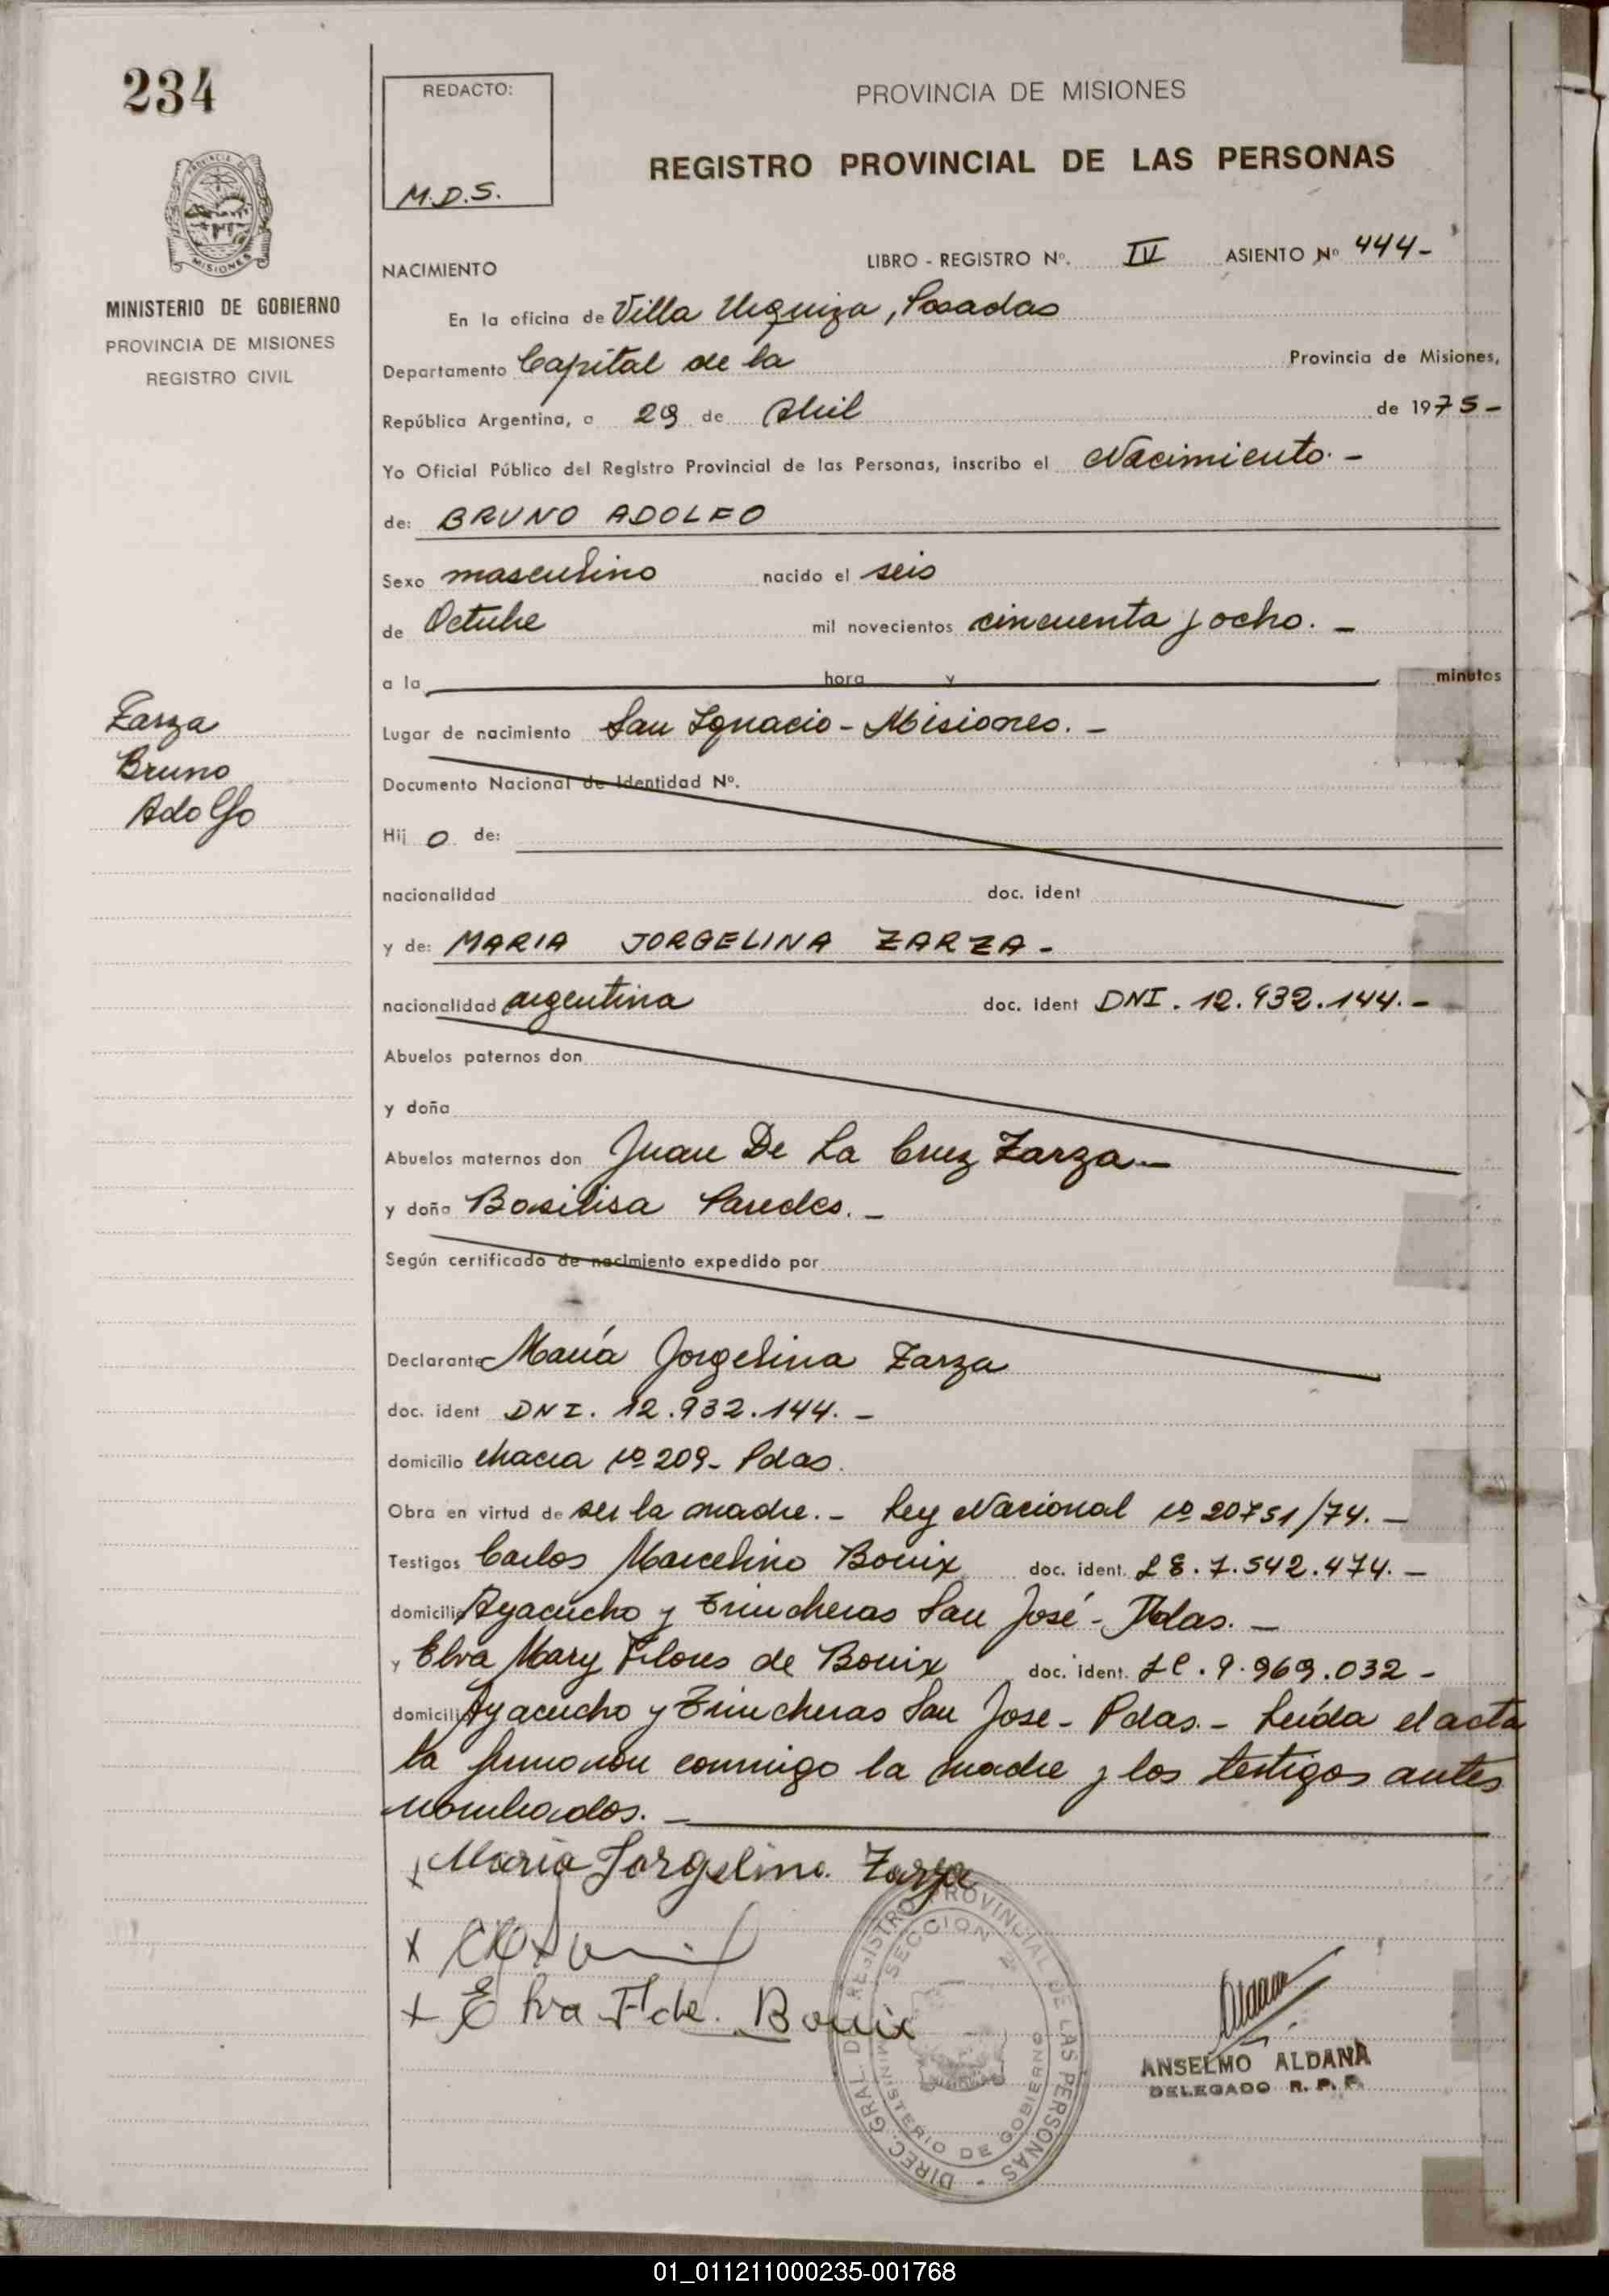 234
REDACTO:
M.D.S.
PROVINCIA DE MISIONES
REGISTRO PROVINCIAL DE LAS PERSONAS
PROVINCIA DE
MISIONES
MINISTERIO DE GOBIERNO
PROVINCIA DE MISIONES
REGISTRO CIVIL
NACIMIENTO
LIBRO - REGISTRO Nº. IV ASIENTO Nº 444-
En la oficina de Villa Urquiza, Posadas
Departamento Capital de la Provincia de Misiones,
República Argentina, a 29 de Abril de 1975-
Yo Oficial Público del Registro Provincial de las Personas, inscribo el Nacimiento. -
de: BRUNO ADOLFO
Sexo masculino nacido el seis
de Octubre mil novecientos cincuenta y ocho. -
a la hora y minutos
Zarza
Bruno
Adolfo
Lugar de nacimiento San Ignacio - Misiones. -
Documento Nacional de Identidad Nº.
Hij o de:
nacionalidad doc. ident
y de: MARIA JORGELINA ZARZA -
nacionalidad argentina doc. Ident DNI. 12.932.144. -
Abuelos paternos don
y doña
Abuelos maternos don Juan De La Cruz Zarza. -
y doña Basilisa Paredes. -
Según certificado de nacimiento expedido por
Declarante María Jorgelina Zarza
doc. ident DNI. 12.932.144. -
domicilio chacra Nº 209- Pdas.
Obra en virtud de ser la madre. - Ley Nacional Nº 20751/74. -
Testigos Carlos Marcelino Bouix doc. ident. LE. 7.542.474. -
domicilio Ayacucho y Trincheras San José - Pdas. -
y Elva Mary Flores de Bouix doc. ident. LC. 9.969.032 -
domicilio Ayacucho y Trincheras San Jose - Pdas. - Leída el acta
la firmaron conmigo la madre y los testigos antes
nombrados. -
x Maria Jorgelina Zarza
x
+ Elva F de. Bouix
DIREC. GRAL. DE REGISTRO PROVINCIAL DE LAS PERSONAS -
SECCION 2ª
MINISTERIO DE GOBIERNO
ANSELMO ALDANA
DELEGADO R. P. P.
01_011211000235-001768